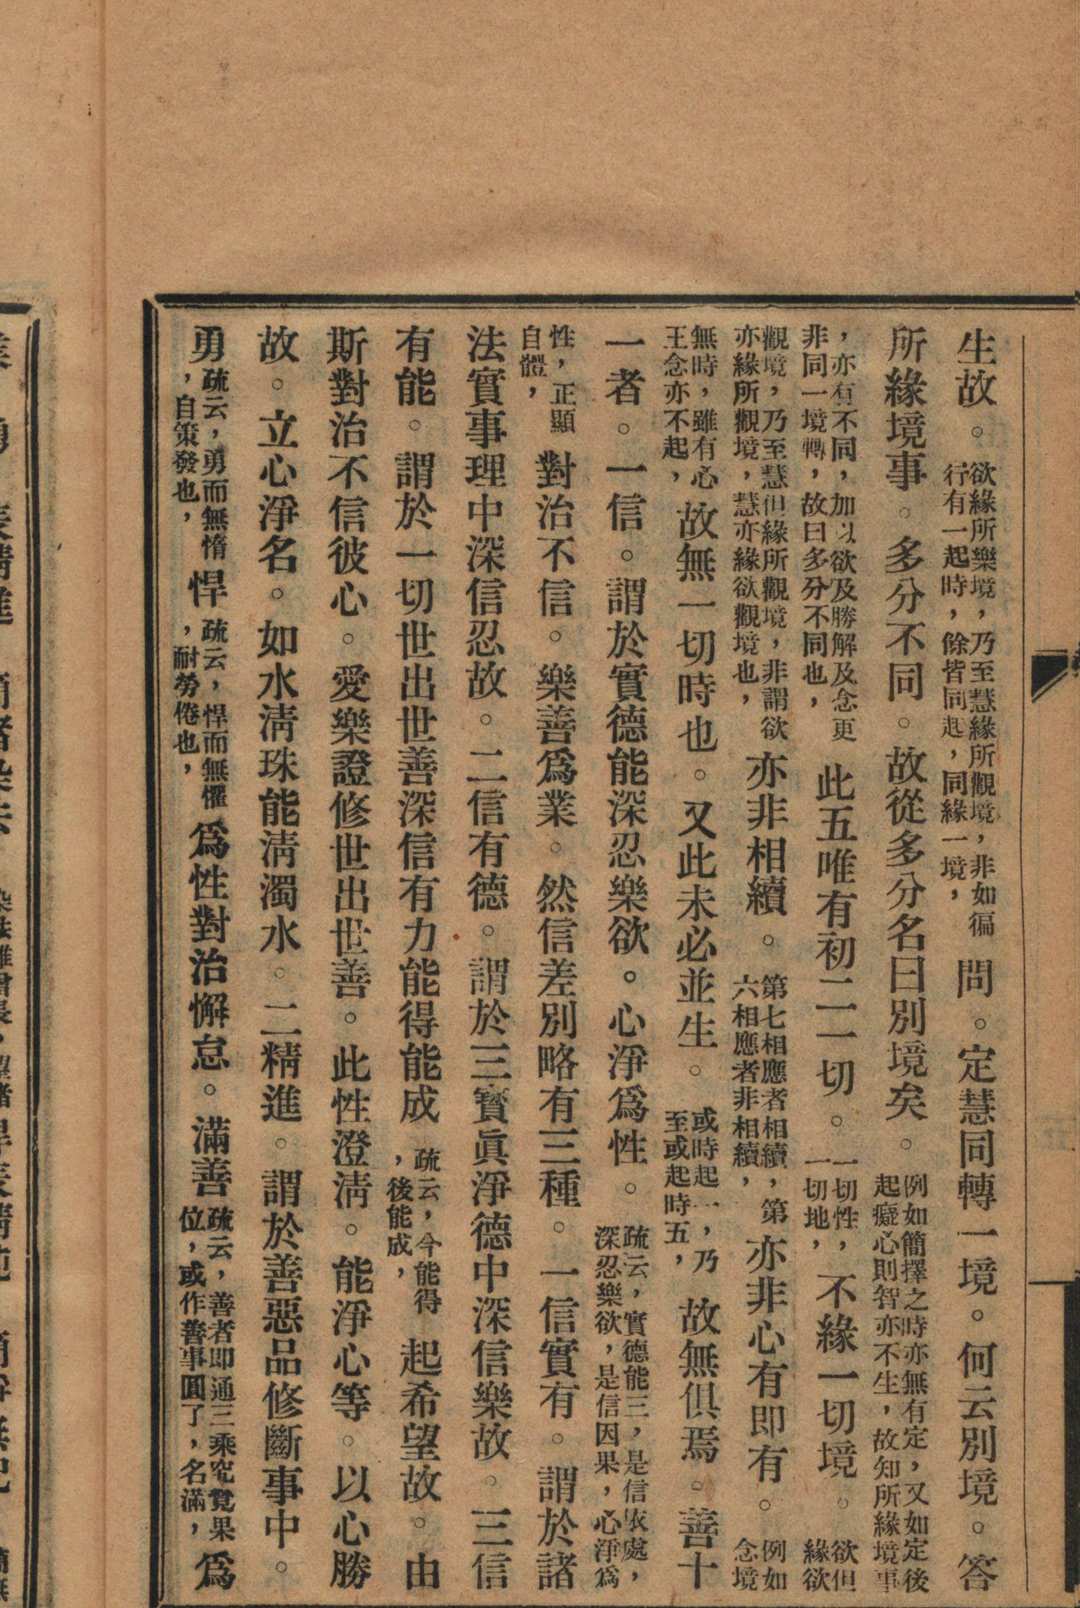 生故。欲緣所樂境，乃至慧緣所觀境，非如徧行有一起時，餘皆同起，同緣一境，問。定慧同轉一境。何云別境。答
所緣境事。多分不同。故從多分名曰別境矣。例如簡擇之時亦無有定，又如定後起癡心則智亦不生，故知所緣境事
，亦有不同，加以欲及勝解及念更非同一境轉，故曰多分不同也，此五唯有初二一切。一切性，一切地，不緣一切境。欲但緣欲
觀境，乃至慧但緣所觀境，非謂欲亦緣所觀境，慧亦緣欲觀境也，亦非相續。第七相應者相續，第六相應者非相續，亦非心有即有。例如念境
無時，雖有心王念亦不起，故無一切時也。又此未必並生。或時起一，乃至或起時五，故無俱焉。善十
一者。一信。謂於實德能深忍樂欲。心淨爲性。疏云，實德能三，是信依處，深忍樂欲，是信因果，心淨爲
性，正顯自體，對治不信。樂善爲業。然信差別略有三種。一信實有。謂於諸
法實事理中深信忍故。二信有德。謂於三寶眞淨德中深信樂故。三信
有能。謂於一切世出世善深信有力能得能成疏云，今能得，後能成，起希望故。由
斯對治不信彼心。愛樂證修世出世善。此性澄淸。能淨心等。以心勝
故。立心淨名。如水淸珠能淸濁水。二精進。謂於善惡品修斷事中。
勇疏云，勇而無惰，自策發也，悍疏云，悍而無懼，耐勞倦也，爲性對治懈怠。滿善疏云，善者即通三乘究竟果位，或作善事圓了，名滿，爲